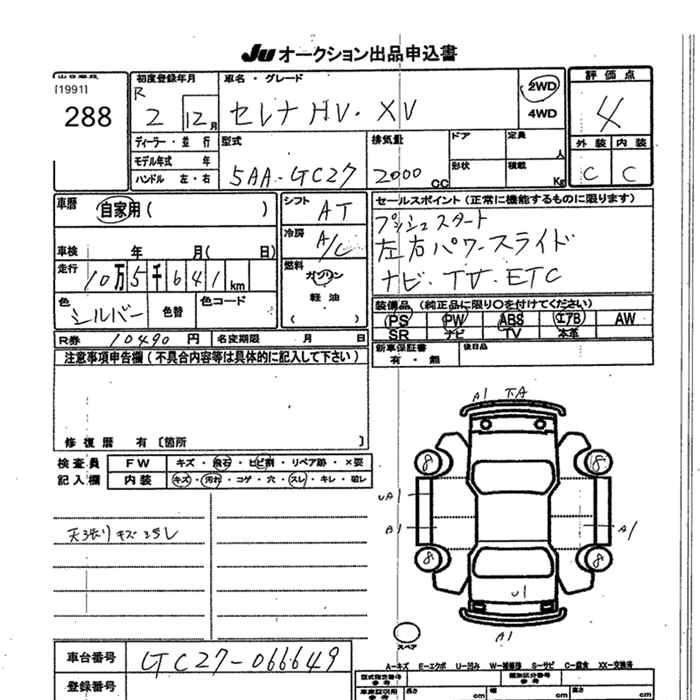 Ju オークション出品申込書
[1991]
288
初度登録年月
R 2 12月
車名・グレード
セレナ HV・XV
2WD
4WD
評価点
4
外装 内装
C C
ディーラー・並行
モデル年式 年
ハンドル 左・右
型式
5AA-GC27
排気量
2000 CC
ドア
形状
定員 人
積載 Kg
車歴
自家用( )
車検 年 月( 日)
走行 10万5千641km
色 シルバー
色替
色コード
シフト AT
冷房 A/C
燃料
ガソリン
軽油
( )
セールスポイント(正常に機能するものに限ります)
プッシュスタート
左右パワースライド
ナビ. TV. ETC
装備品(純正品に限り○を付けてください)
PS PW ABS エアB AW
SR ナビ TV 本革
R券 10490円
名変期限 月 日
新車保証書
有・無
後日品
注意事項申告欄(不具合内容等は具体的に記入して下さい)
修復歴 有〔箇所 〕
検査員
記入欄
FW キズ・飛石・ヒビ割・リペア跡・×要
内装 キズ・汚れ・コゲ・穴・スレ・キレ・破レ
天張りキズヨゴレ
A1
8 8
UA1
A1 A1
8 8
U1
A1
スペア
A-キズ E-エクボ U-凹み W-補修跡 S-サビ C-腐食 XX-交換済
車台番号
GC27-066649
登録番号
型式指定番号
参考
類別区分番号
参考
長さ cm
幅 cm
高さ cm